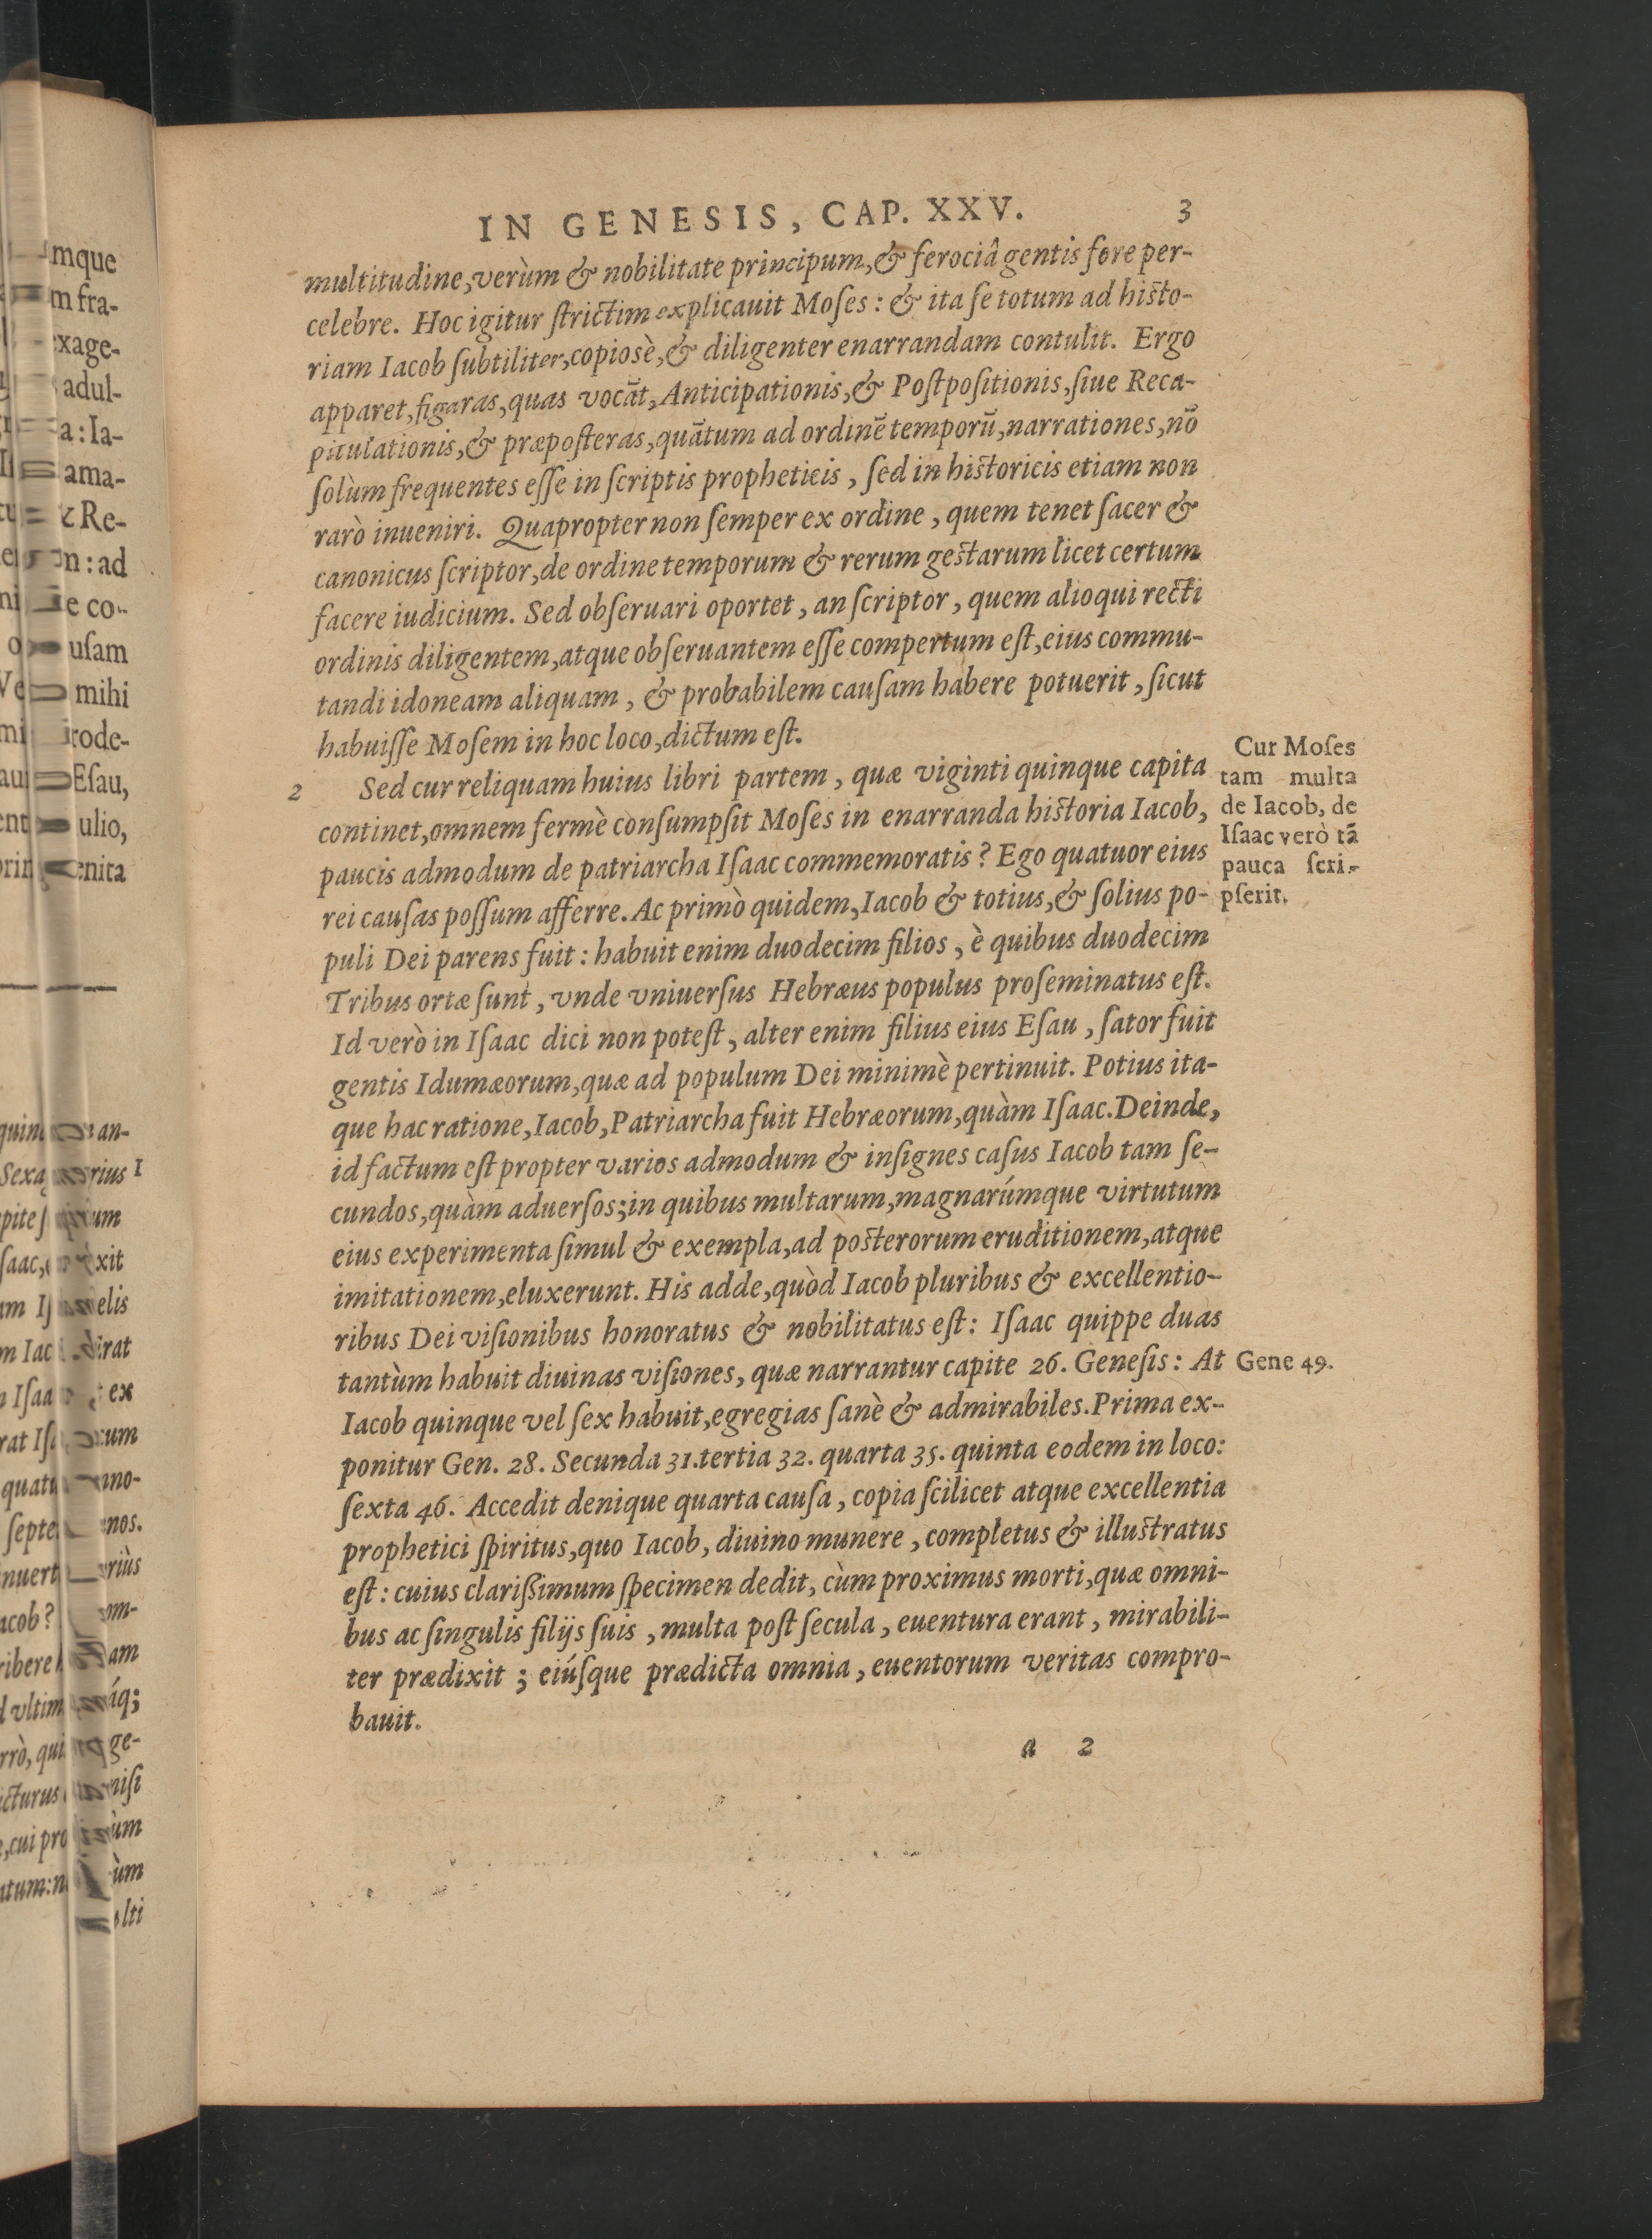 IN GENESIS, CAP. XXV. 3
multitudine, verùm & nobilitate principum, & ferociâ gentis fore per-
celebre. Hoc igitur ſtrictim explicauit Moſes: & ita ſe totum ad hiſto-
riam Iacob ſubtiliter, copiosè, & diligenter enarrandam contulit. Ergo
apparet, figaras, quas vocāt, Anticipationis, & Poſtpoſitionis, ſiue Reca-
pitulationis, & præpoſteras, quātum ad ordinē temporū, narrationes, nō
ſolùm frequentes eſſe in ſcriptis propheticis, ſed in hiſtoricis etiam non
rarò inueniri. Quapropter non ſemper ex ordine, quem tenet ſacer &
canonicus ſcriptor, de ordine temporum & rerum geſtarum licet certum
facere iudicium. Sed obſeruari oportet, an ſcriptor, quem alioqui recti
ordinis diligentem, atque obſeruantem eſſe compertum eſt, eius commu-
tandi idoneam aliquam, & probabilem cauſam habere potuerit, ſicut
habuiſſe Moſem in hoc loco, dictum eſt.
2 Sed cur reliquam huius libri partem, quæ viginti quinque capita
continet, omnem fermè conſumpſit Moſes in enarranda hiſtoria Iacob,
paucis admodum de patriarcha Iſaac commemoratis? Ego quatuor eius
rei cauſas poſſum afferre. Ac primò quidem, Iacob & totius, & ſolius po-
puli Dei parens fuit: habuit enim duodecim filios, è quibus duodecim
Tribus ortæ ſunt, vnde vniuerſus Hebræus populus proſeminatus eſt.
Id verò in Iſaac dici non poteſt, alter enim filius eius Eſau, ſator fuit
gentis Idumæorum, quæ ad populum Dei minimè pertinuit. Potius ita-
que hac ratione, Iacob, Patriarcha fuit Hebræorum, quàm Iſaac. Deinde,
id factum eſt propter varios admodum & inſignes caſus Iacob tam ſe-
cundos, quàm aduerſos; in quibus multarum, magnarúmque virtutum
eius experimenta ſimul & exempla, ad poſterorum eruditionem, atque
imitationem, eluxerunt. His adde, quòd Iacob pluribus & excellentio-
ribus Dei viſionibus honoratus & nobilitatus eſt: Iſaac quippe duas
tantùm habuit diuinas viſiones, quæ narrantur capite 26. Geneſis: At
Iacob quinque vel ſex habuit, egregias ſanè & admirabiles. Prima ex-
ponitur Gen. 28. Secunda 31. tertia 32. quarta 35. quinta eodem in loco:
ſexta 46. Accedit denique quarta cauſa, copia ſcilicet atque excellentia
prophetici ſpiritus, quo Iacob, diuino munere, completus & illuſtratus
eſt: cuius clarißimum ſpecimen dedit, cùm proximus morti, quæ omni-
bus ac ſingulis filijs ſuis, multa poſt ſecula, euentura erant, mirabili-
ter prædixit; eiúſque prædicta omnia, euentorum veritas compro-
bauit.
a 2
Cur Moſes
tam multa
de Iacob, de
Iſaac verò tā
pauca ſcri-
pſerit.
Gene 49.